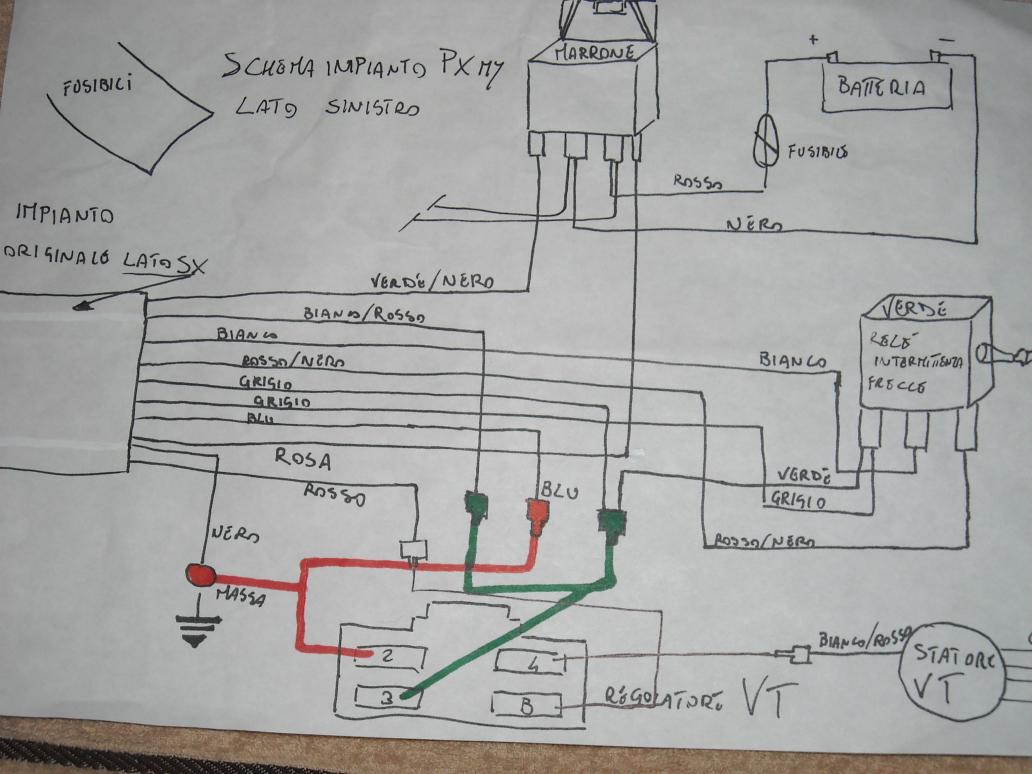 FUSIBILI
SCHEMA IMPIANTO PX MY
LATO SINISTRO
MARRONE
+ −
BATTERIA
FUSIBILE
ROSSO
NERO
IMPIANTO
ORIGINALE LATO SX
VERDE/NERO
BIANCO/ROSSO
BIANCO
ROSSO/NERO
GRIGIO
GRIGIO
BLU
ROSA
ROSSO
NERO
MASSA
BLU
BIANCO
VERDE
RELÈ
INTERMITTENZA
FRECCE
VERDE
GRIGIO
ROSSO/NERO
2
3
4
B
REGOLATORE VT
BIANCO/ROSSA
STATORE
VT